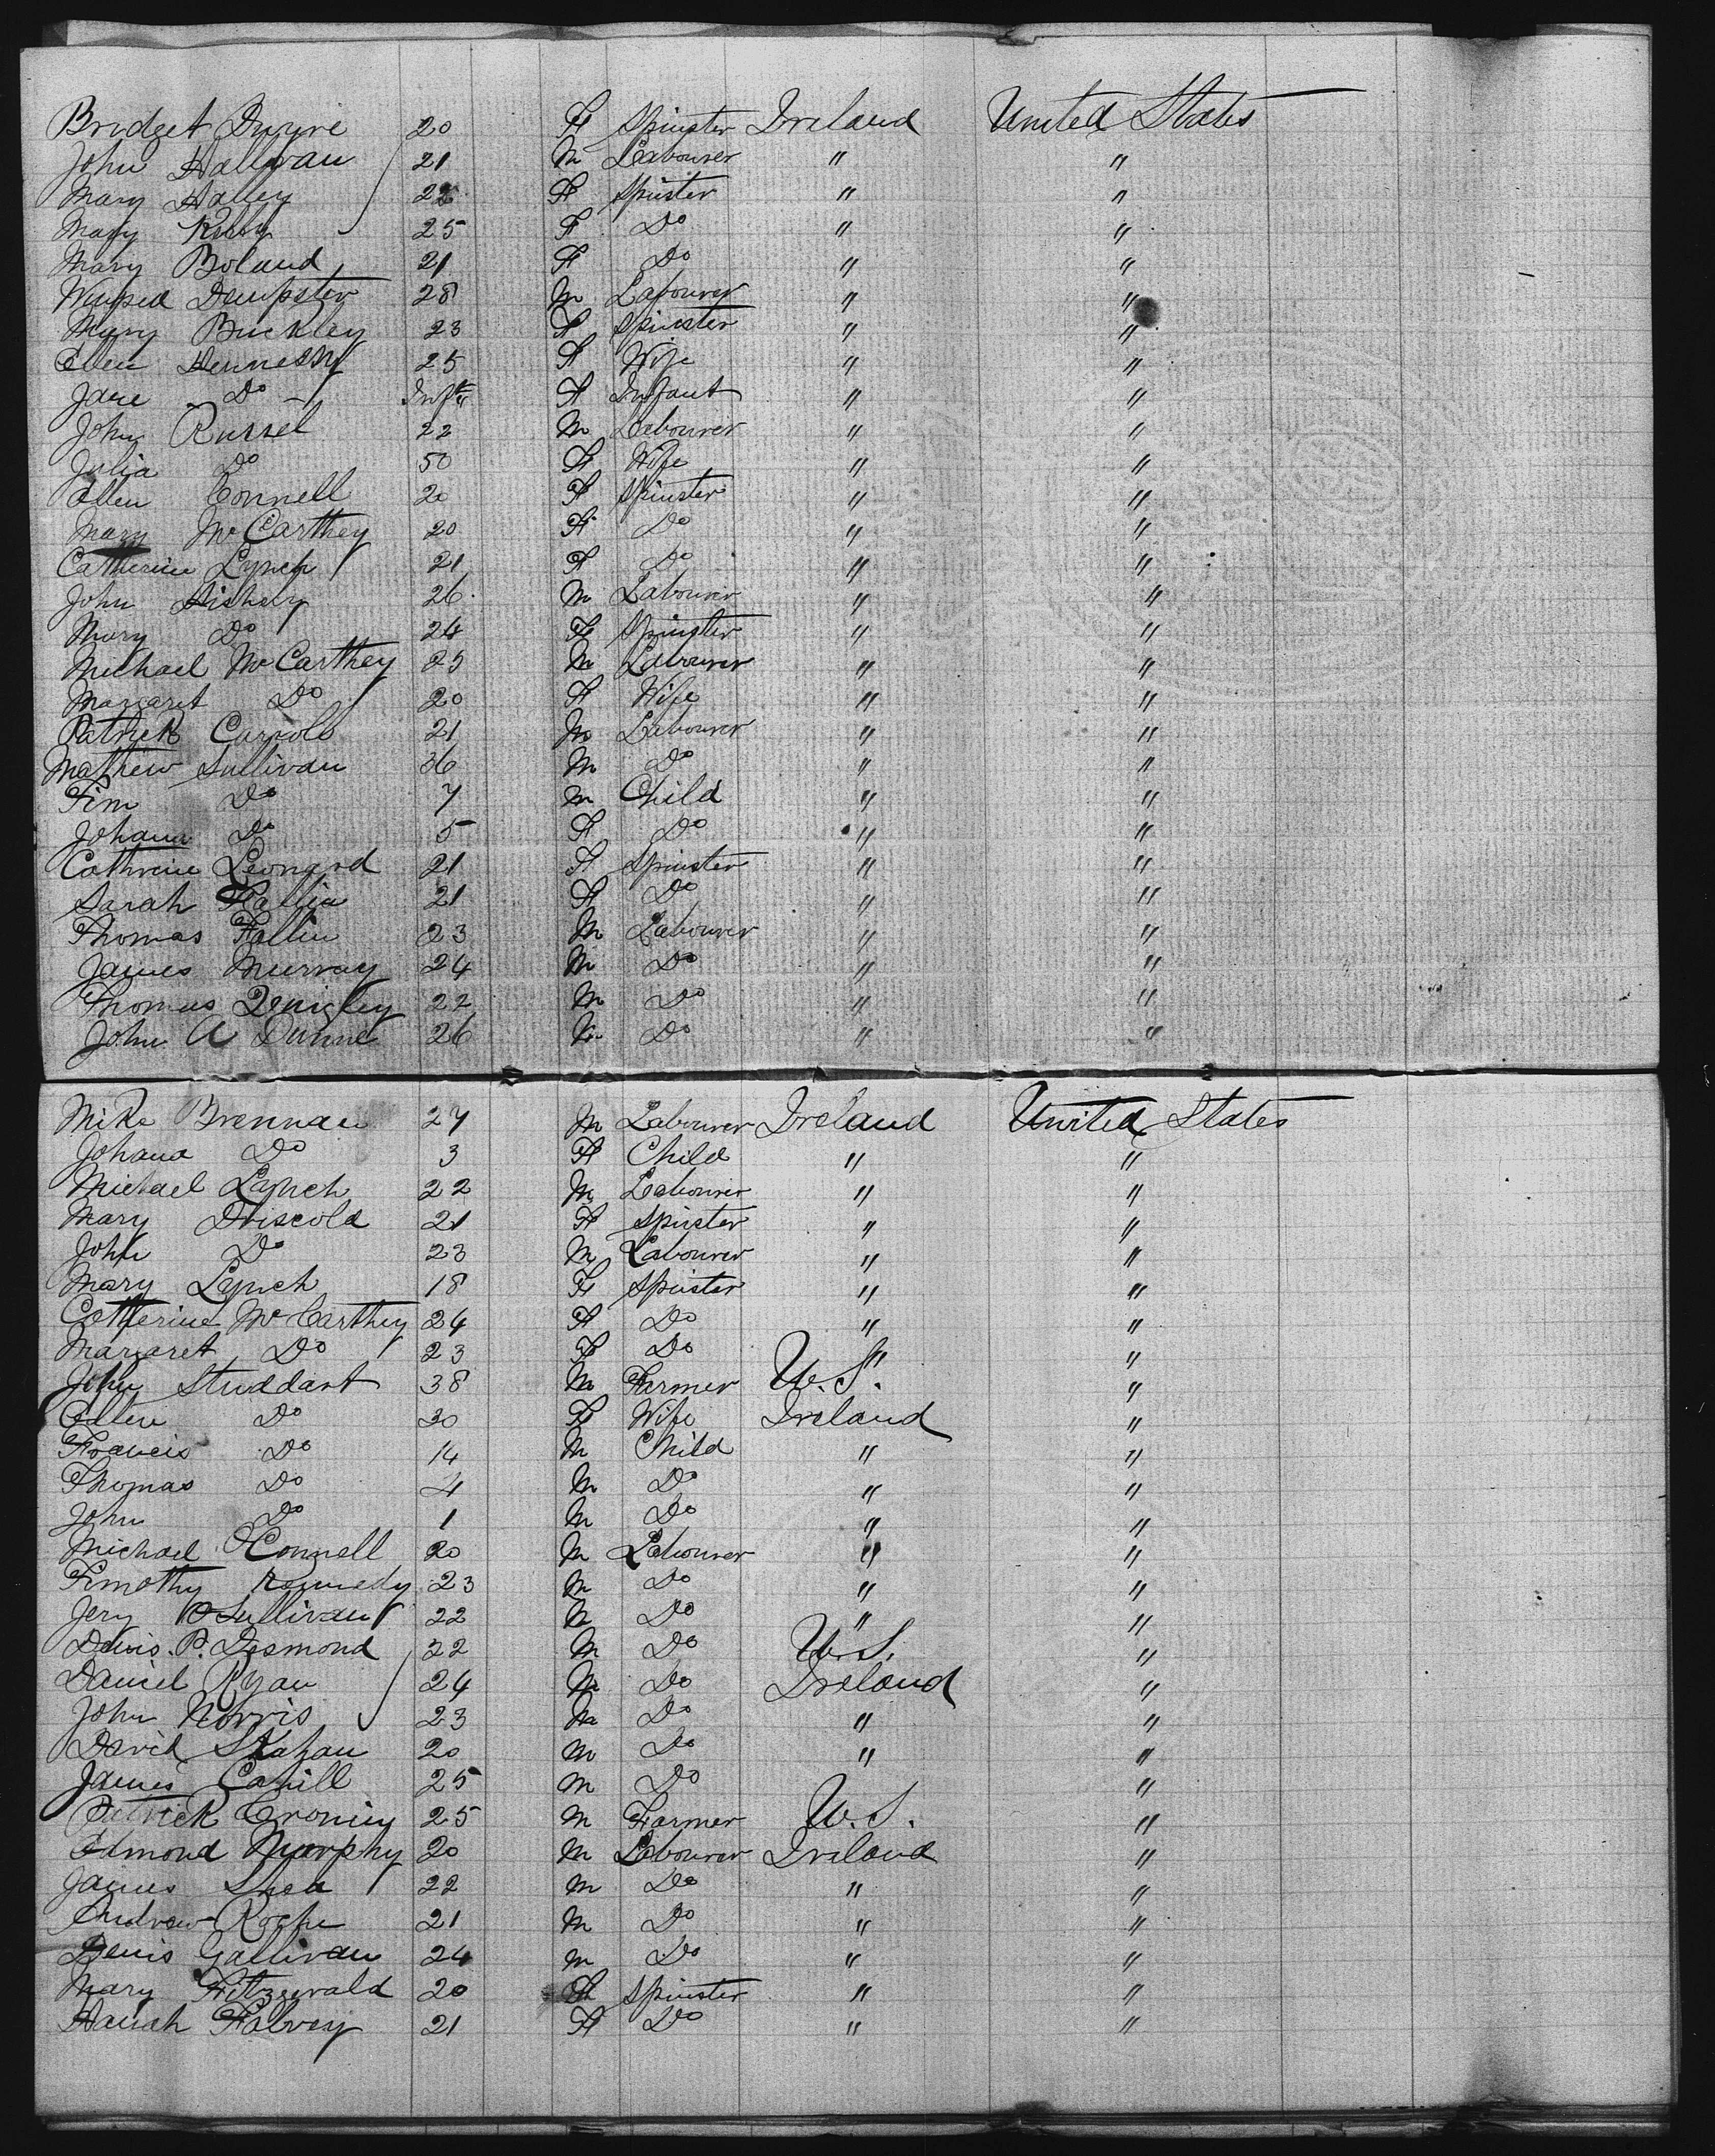 Bridget Dwyre 20 F Spinster Ireland United States
John Hallivan 21 M Labourer " "
Mary Halley 22 F Spinster " "
Mary Kelly 25 F Do " "
Mary Boland 21 F Do " "
Dempster 28 M Labourer " "
Mary Buckley 23 F Spinster " "
Ellen Hennessy 25 F Wife " "
Jane Do Inft F Infant " "
John Russel 22 M Labourer " "
Julia Do 50 F Wife " "
Ellen Connell 20 F Spinster " "
Mary McCarthey 20 F Do " "
Catherine Lynch 21 F Do " "
John 26 M Labourer " "
Mary Do 24 F Spinster " "
Michael McCarthey 25 M Labourer " "
Margaret Do 20 F Wife " "
Patrick Carroll 21 M Labourer " "
Mathew Sullivan 36 M Do " "
Tim Do 7 M Child " "
Johana Do 5 F Do " "
Cathrine Leonard 21 F Spinster " "
Sarah Fallin 21 F Do " "
Thomas Fallin 23 M Labourer " "
James Murray 24 M Do " "
Thomas Quigley 22 M Do " "
John A Dunne 26 M Do " "
Mike Brennan 27 M Labourer Ireland United States
Johana Do 3 F Child " "
Michael Lynch 22 M Labourer " "
Mary Driscold 21 F Spinster " "
John Do 23 M Labourer " "
Mary Lynch 18 F Spinster " "
Catherine McCarthey 24 F Do " "
Margaret Do 23 F Do " "
John Studdart 38 M Farmer U.S. "
Ellen Do 30 F Wife Ireland "
Francis Do 14 M Child " "
Thomas Do 4 M Do " "
John Do 1 M Do " "
Michael O'Connell 20 M Labourer " "
Timothy Kennedy 23 M Do " "
Jery O'Sullivan 22 M Do " "
Denis. P. Desmond 32 M Do U.S. "
Daniel Ryan 24 M Do Ireland "
John Norris 23 M Do " "
David 20 M Do " "
James Cahill 25 M Do " "
Patrick Cronin 25 M Farmer U.S. "
Edmond Murphy 20 M Labourer Ireland "
James Shea 22 M Do " "
Andrew Roche 21 M Do " "
Denis Gallivan 24 M Do " "
Mary Fitzgerald 20 F Spinster " "
Hanah Falvey 21 F Do " "